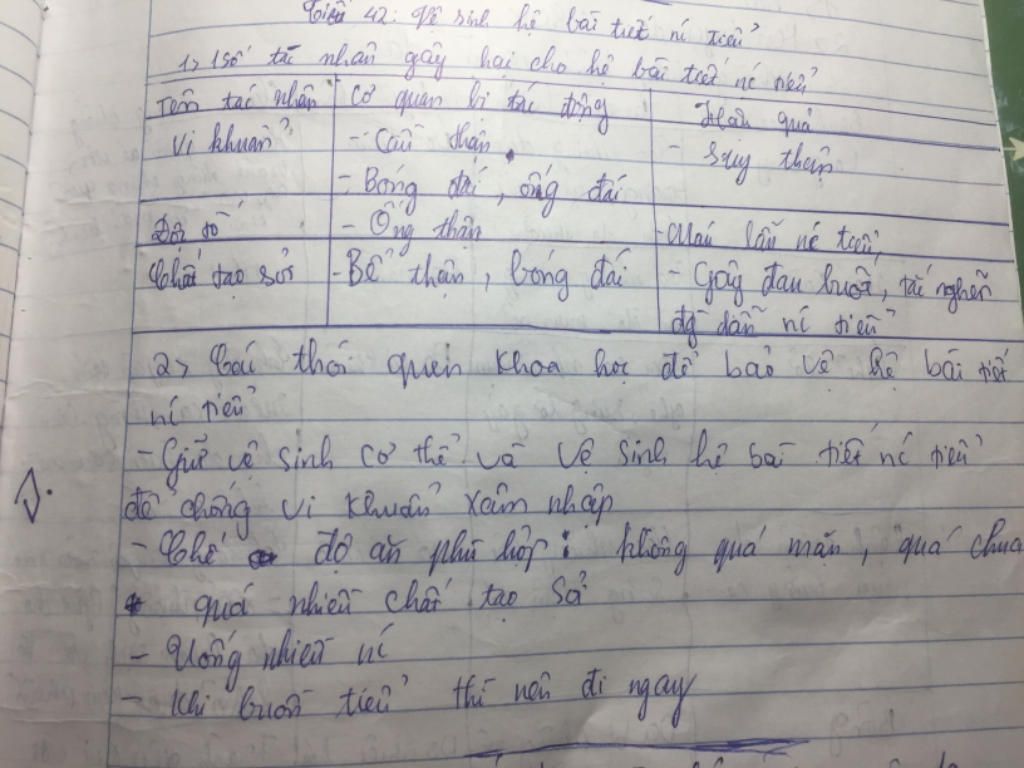 Tiết 42: Vệ sinh hệ bài tiết nc tiểu
1> 1 số tác nhân gây hại cho hệ bài tiết nc tiểu
Tên tác nhân | Cơ quan bị tác động | Hậu quả
Vi khuẩn | - Cầu thận | - Suy thận
- Bóng đái, ống đái
Độc tố | - Ống thận | - Máu lẫn nc tiểu,
Chất tạo sỏi | - Bể thận, bóng đái | - Gây đau buốt, tắc nghẽn
đg dẫn nc tiểu
2> Các thói quen khoa học để bảo vệ hệ bài tiết
nc tiểu
- Giữ vệ sinh cơ thể và vệ sinh hệ bài tiết nc tiểu
để chống vi khuẩn xâm nhập
- Chế độ ăn phù hợp: không quá mặn, quá chua
quá nhiều chất tạo sỏi
- Uống nhiều nc
- Khi buồn tiểu thì nên đi ngay